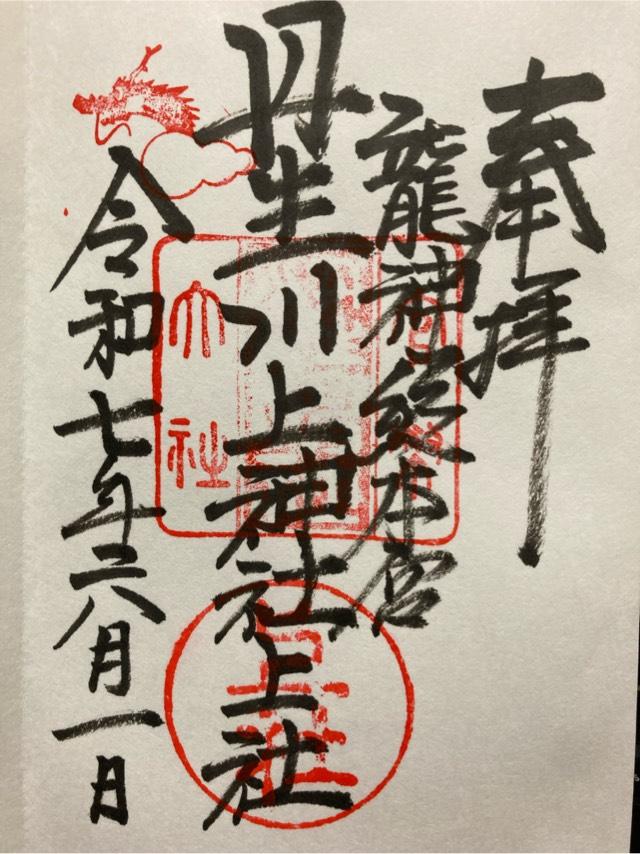 奉拝
龍神総本宮
丹生川上神社上社
令和七年六月一日
大社